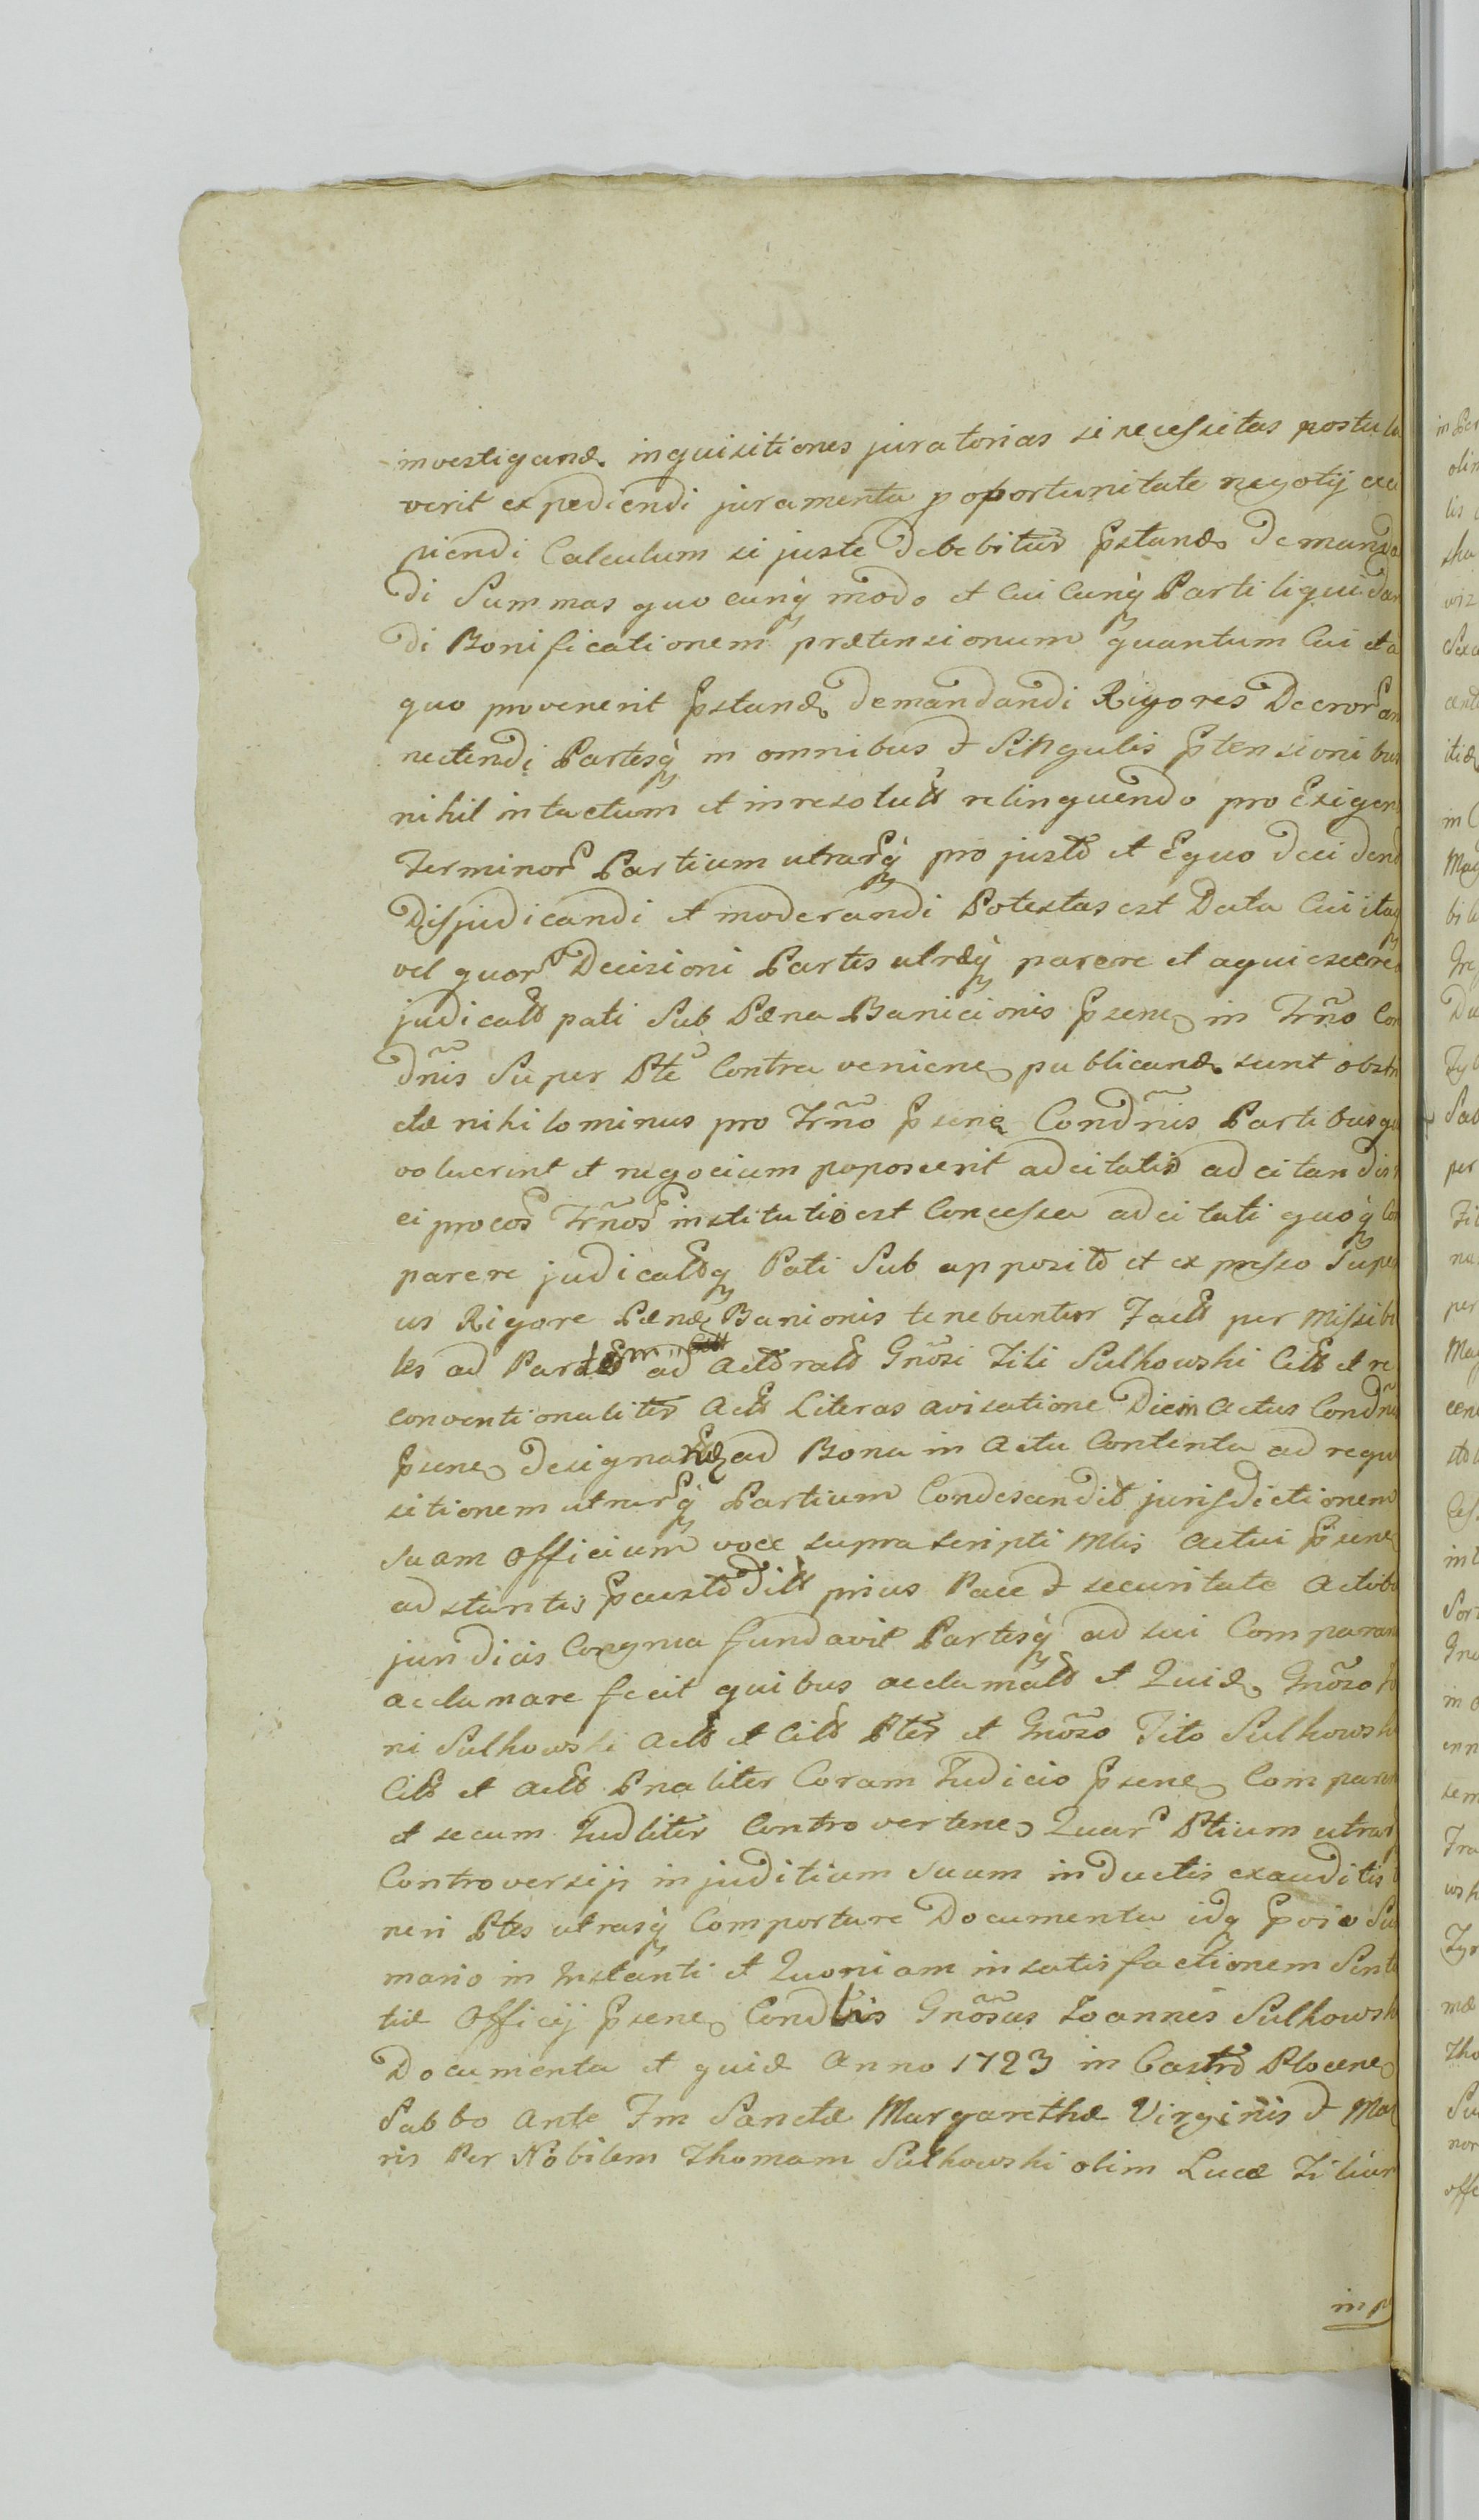 investigand. inquisitiones juratorias si necessitas postula
verit expediendi juramenta p oportunitate negotij exci
piendi Calculum si juste debebitur pstand. demanda
di Summas quocunq modo et Cui Cunq Parti liquidan
di Bonificationem prætensionum quantum Cui et a
quo provenerit pstand. demandandi Rigores Decror an
nectendi Partesq in omnibus & Singulis ptensionibus
nihil intactum et inresolutt relinquendo pro Exigen
Terminor Partium utrarq pro justo et Equo decidend
Disjudicandi et moderandi Potestas est Data Cui itaq
vel quor Decisioni Partes utræq parere et aquiescere
judicatt pati Sub Pæna Banicionis psene in Trño Con
dñis Super Pte Contra veniene publicand. sunt obstri
ctæ nihilominus pro Trño psene Condñis Partibus qu
voluerint et negocium poposcerit adcitatis adcitandis
ei pro eos Trños institutio est Concessa adcitati quoq Com
parere judicattq Pati Sub apposito et expresso Super
us Rigore Pænæ Banionis tenebuntur Factt per Missibi
les ad Partem ad Acttoratt Gnosi Titi Sulkowski Citt et re
conventionaliter Actt Literas avisatione Diem Actus Condñis
psene designand. ad Bona in Actu Contenta ad requi
sitionem utrarq Partium Condescendit jurisdictionem
suam officium voce suprascripti Mlis Actui psene
adstantis pcustoditt prius Pace & securitate Actibus
juridicis Congrua fundavit Partesq ad sui Comparen
acclamare fecit quibus acclamatt et Quid. Gnoso Jo
ni Sulkowski Actt et Citt Pter et Gnoso Tito Sulkowski
Citt et Actt Pnaliter Coram Judicio psene Comparen
et secum Judliter Controvertene Quar Ptium utrarq
Controversijs in juditium suum inductis exauditis
neri Ptes utrasq Comportare Documenta idq pvio Su
mario in Instanti et Quoniam in satisfactionem Senten
tiæ Officij psene Condlis Gnosus Joannes Sulkowski
Documenta et quid Anno 1723 in Castro Plocene
Sabbo Ante Fm Sanctæ Margarethæ Virginis & Mar
ris Per Nobilem Thomam Sulkowski olim Lucæ Filium
in p